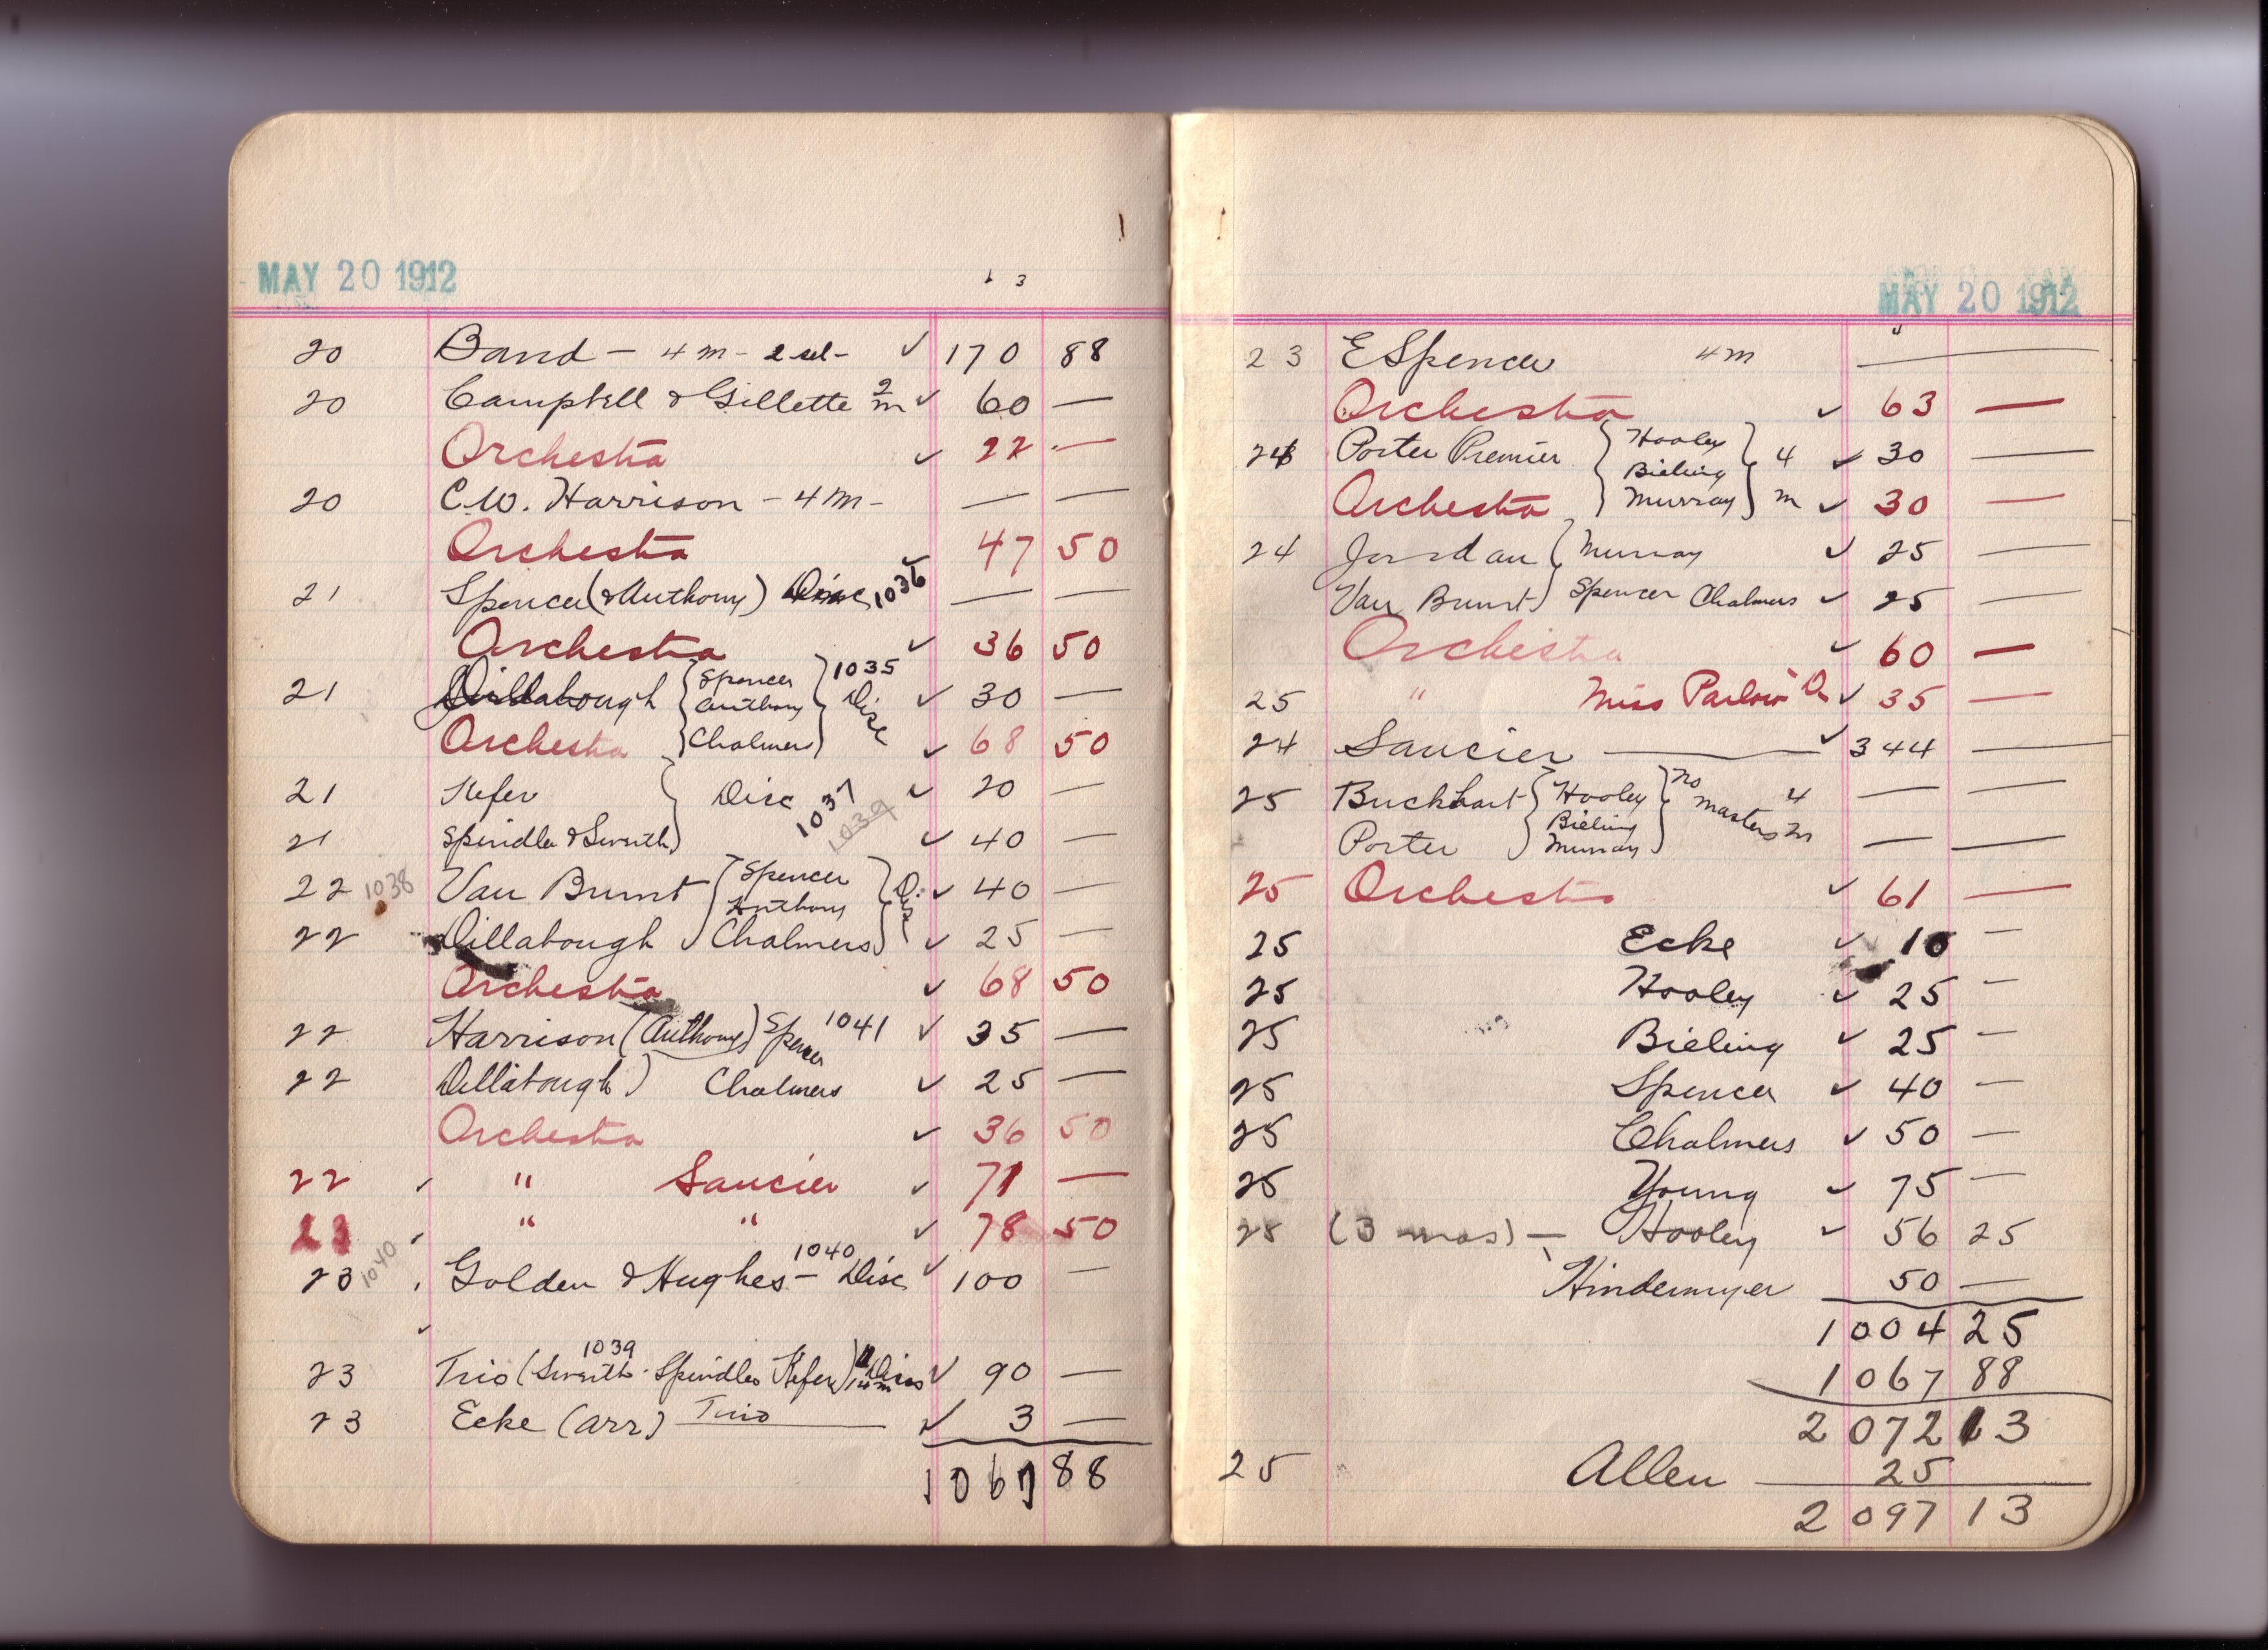 MAY 20 1912
20 Band – 4 m – 2 sel – ✓ 170 88
20 Campbell & Gillette 2 m ✓ 60 —
Orchestra ✓ 22 —
20 C.W. Harrison – 4 m – — —
Orchestra ✓ 47 50
21 Spencer (& Anthony) Disc 1036 — —
Orchestra ✓ 36 50
21 Dillabough { Spencer } 1035 ✓ 30 —
Anthony Disc
Orchestra Chalmers ✓ 68 50
21 Kefer } Disc 1037 ✓ 20 —
1039
21 Spindler & Smith ✓ 40 —
22 1038 Van Brunt { Spencer } Disc ✓ 40 —
Anthony
22 Dillabough Chalmers ✓ 25 —
Orchestra ✓ 68 50
22 Harrison (Anthony) Spencer 1041 ✓ 35 —
22 Dillabough ) Chalmers ✓ 25 —
Orchestra ✓ 36 50
22 ✓ " Saucier ✓ 71 —
23 " " ✓ 78 50
23 1040 Golden & Hughes – 1040 Disc ✓ 100 —
1039
23 Trio (Smith - Spindler Kefer) Disc ✓ 90 —
23 Ecke (arr) Trio ✓ 3 —
1067 88
MAY 20 1912
23 E Spencer 4 m —
Orchestra ✓ 63 —
24 Porter Premier { Hooley } 4 ✓ 30 —
Bieling
Orchestra Murray m ✓ 30 —
24 Jordan ( Murray ✓ 25 —
Van Brunt ) Spencer Chalmers ✓ 25 —
Orchestra ✓ 60 —
25 " Miss Parlow ✓ 35 —
24 Saucier — ✓ 344 —
25 Buckhart { Hooley } no masters 4 m — —
Bieling
Porter Murray — —
25 Orchestra ✓ 61 —
25 Ecke ✓ 10 —
25 Hooley ✓ 25 —
25 Bieling ✓ 25 —
25 Spencer ✓ 40 —
25 Chalmers ✓ 50 —
25 Young ✓ 75 —
25 (3 mos) – Hooley ✓ 56 25
Hindermyer 50 —
1004 25
1067 88
2072 13
25 Allen 25
2097 13